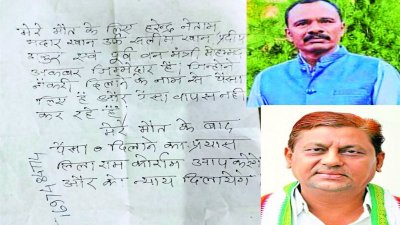 मेरे मौत के लिए हरेन्द्र नेताम
मदार खान उर्फ सलीम खान प्रदीप
ठाकुर एवं पूर्व वन मंत्री मोहम्मद
अकबर जिम्मेदार है जिन्होंने
नौकरी दिलाने के नाम से पैसा
लिए हैं और पैसा वापस नही
कर रहे हैं
मेरे मौत के बाद
पैसा दिलाने का प्रयास
जिला राम कोर्राम आप करेंगे
और को न्याय दिलायेंगे